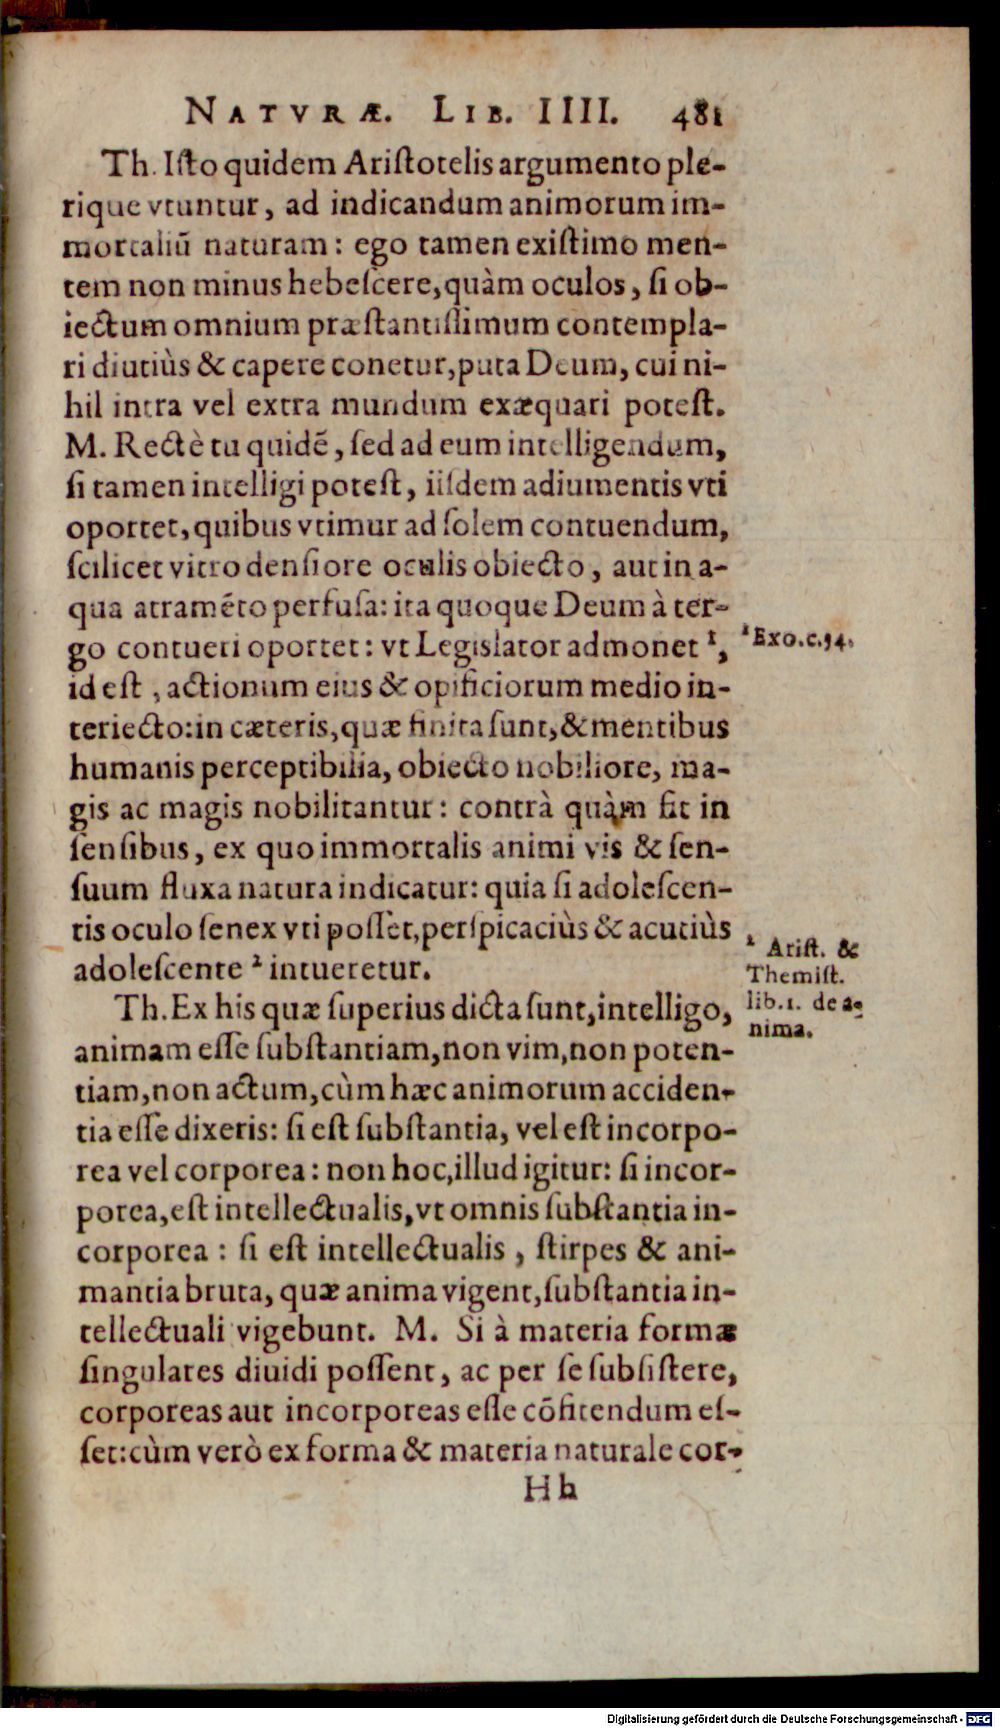 NATVRÆ. LIB. IIII. 481
Th. Iſto quidem Ariſtotelis argumento ple-
rique vtuntur, ad indicandum animorum im-
mortaliū naturam: ego tamen exiſtimo men-
tem non minus hebeſcere, quàm oculos, ſi ob-
iectum omnium præſtantiſſimum contempla-
ri diutiùs & capere conetur, puta Deum, cui ni-
hil intra vel extra mundum exæquari poteſt.
M. Rectè tu quidē, ſed ad eum intelligendum,
ſi tamen intelligi poteſt, iiſdem adiumentis vti
oportet, quibus vtimur ad ſolem contuendum,
ſcilicet vitro denſiore oculis obiecto, aut in a-
qua atramēto perfuſa: ita quoque Deum à ter-
go contueri oportet: vt Legislator admonet ¹,
¹ Exo.c.34.
id eſt, actionum eius & opificiorum medio in-
teriecto: in cæteris, quæ finita ſunt, & mentibus
humanis perceptibilia, obiecto nobiliore, ma-
gis ac magis nobilitantur: contrà quàm fit in
ſenſibus, ex quo immortalis animi vis & ſen-
ſuum fluxa natura indicatur: quia ſi adoleſcen-
tis oculo ſenex vti poſſet, perſpicaciùs & acutiùs
adoleſcente ² intueretur.
² Ariſt. &
Themiſt.
lib.1. de a-
nima.
Th. Ex his quæ ſuperius dicta ſunt, intelligo,
animam eſſe ſubſtantiam, non vim, non poten-
tiam, non actum, cùm hæc animorum acciden-
tia eſſe dixeris: ſi eſt ſubſtantia, vel eſt incorpo-
rea vel corporea: non hoc, illud igitur: ſi incor-
porea, eſt intellectualis, vt omnis ſubſtantia in-
corporea: ſi eſt intellectualis, ſtirpes & ani-
mantia bruta, quæ anima vigent, ſubſtantia in-
tellectuali vigebunt. M. Si à materia formæ
ſingulares diuidi poſſent, ac per ſe ſubſiſtere,
corporeas aut incorporeas eſſe cōfitendum eſ-
ſet: cùm verò ex forma & materia naturale cor-
Hh
Digitalisierung gefördert durch die Deutsche Forschungsgemeinschaft - DFG